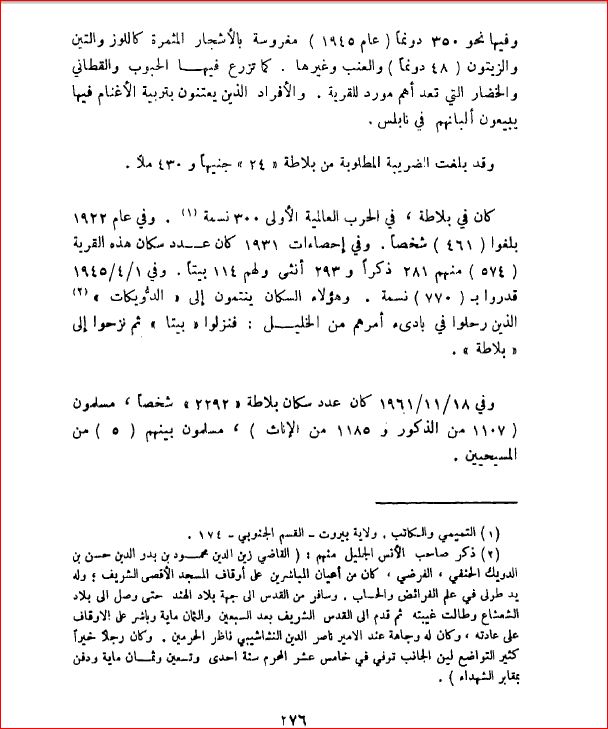 وفيها نحو ٣٥٠ دونماً ( عام ١٩٤٥ ) مغروسة بالأشجار المثمرة كاللوز والتين
والزيتون ( ٤٨ دونماً ) والعنب وغيرها . كما تزرع فيهــا الحبوب والقطاني
والخضار التي تعد أهم مورد للقرية . والأفراد الذين يعتنون بتربية الأغنام فيها
يبيعون ألبانهم في نابلس .
وقد بلغت الضريبة المطلوبة من بلاطة « ٢٤ » جنيهاً و ٤٣٠ ملاً .
كان في بلاطة ، في الحرب العالمية الأولى ٣٠٠ نسمة (١) . وفي عام ١٩٢٢
بلغوا ( ٤٦١ ) شخصاً . وفي إحصاءات ١٩٣١ كان عــدد سكان هذه القرية
( ٥٧٤ ) منهم ٢٨١ ذكراً و ٢٩٣ أنثى ولهم ١١٤ بيتاً . وفي ١٩٤٥/٤/١
قدروا بـ ( ٧٧٠ ) نسمة . وهؤلاء السكان ينتمون إلى « الدُّويكات » (٢)
الذين رحلوا في بادىء أمرهم من الخليــل : فنزلوا « بيتا » ثم نزحوا إلى
« بلاطة » .
وفي ١٩٦١/١١/١٨ كان عدد سكان بلاطة « ٢٢٩٢ » شخصاً ، مسلمون
( ١١٠٧ من الذكور و ١١٨٥ من الإناث ) ، مسلمون بينهم ( ٥ ) من
المسيحيين .
(١) التميمي والكاتب . ولاية بيروت ــ القسم الجنوبي - ١٧٤ .
(٢) ذكر صاحب الأنس الجليل منهم : ( القاضي زين الدين محمــود بن بدر الدين حسن بن
الدويك الحنفي ، الفرضي ، كان من أعيان المباشرين على أوقاف المسجد الأقصى الشريف ؛ وله
يد طولى في علم الفرائض والحساب . وسافر من القدس الى جهة بلاد الهند حتى وصل الى بلاد
الشمشاع وطالت غيبته ثم قدم الى القدس الشريف بعد السبعين والثمان ماية وباشر على الاوقاف
على عادته ، وكان له وجاهة عند الامير ناصر الدين النشاشيبي ناظر الحرمين . وكان رجلاً خيراً
كثير التواضع لين الجانب توفي في خامس عشر المحرم سنة احدى وتسعين وثمــان ماية ودفن
بمقابر الشهداء ) .
٢٧٦